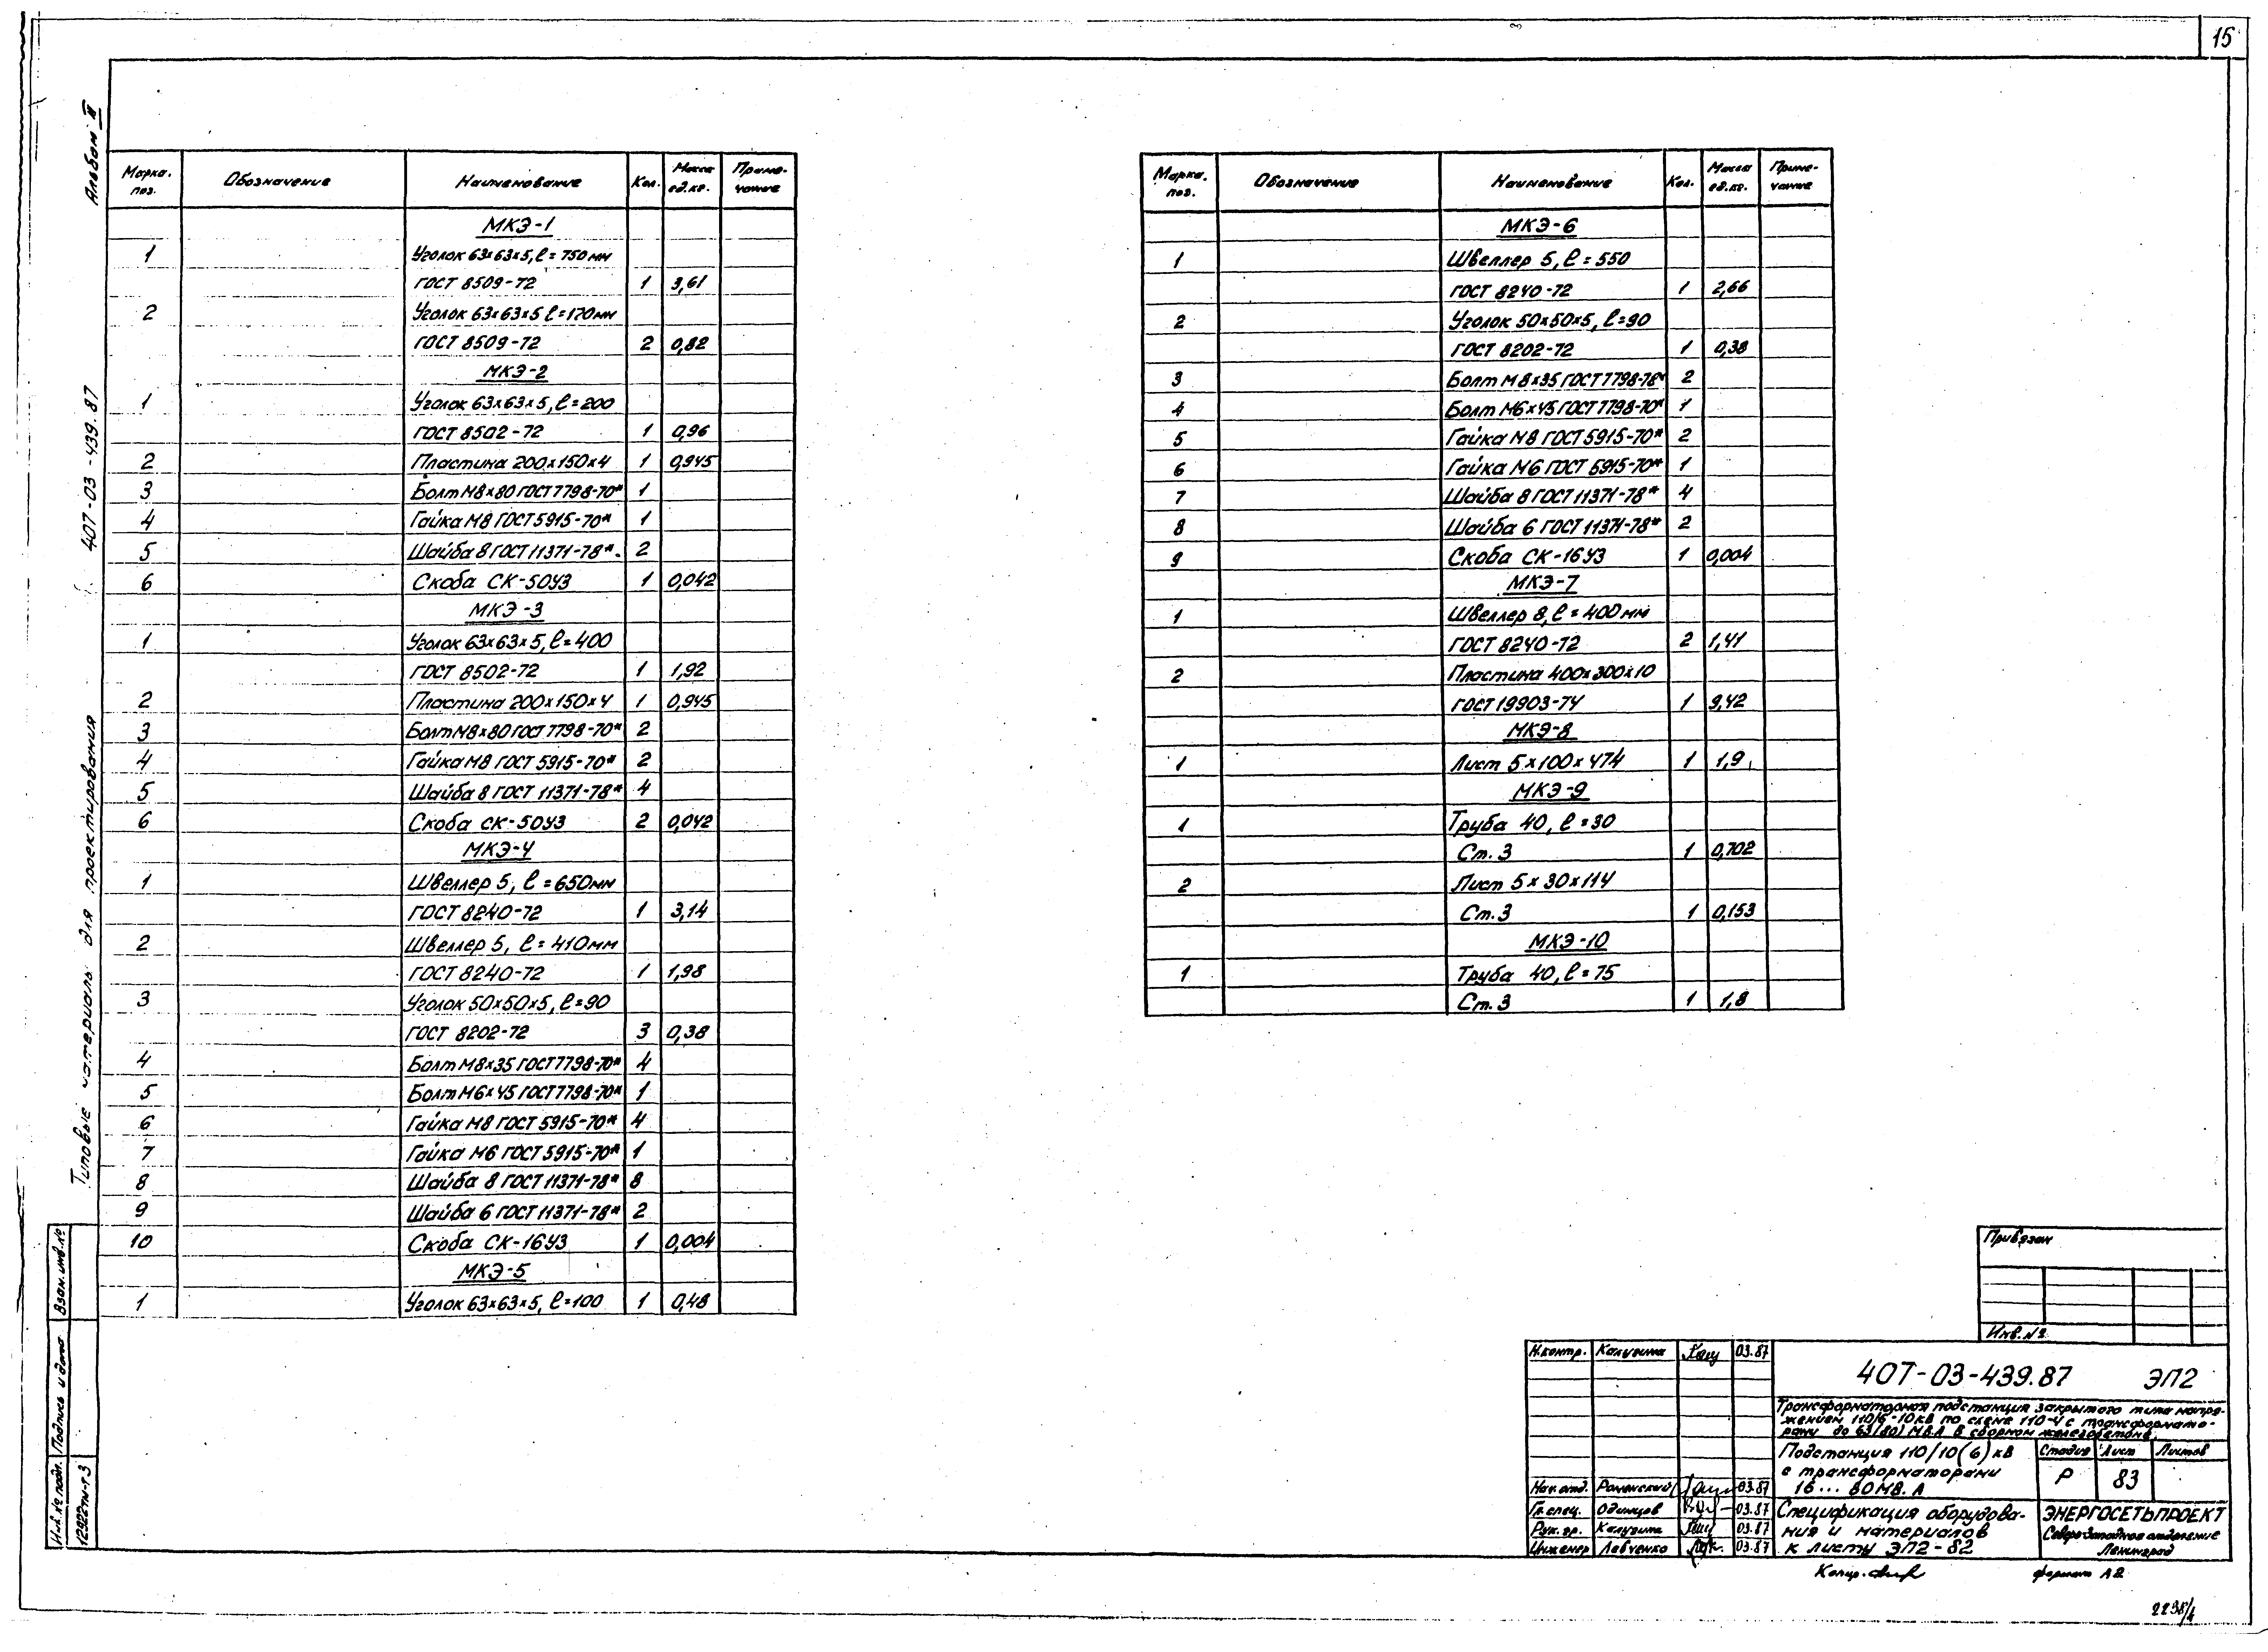 15
Альбом II
407-03-439.87
Типовые материалы для проектирования
Марка. поз.
Обозначение
Наименование
Кол.
Масса ед.кг.
Приме-чание
МКЭ-1
1 Уголок 63×63×5, ℓ=750мм
ГОСТ 8509-72 1 3,61
2 Уголок 63×63×5 ℓ=170мм
ГОСТ 8509-72 2 0,82
МКЭ-2
1 Уголок 63×63×5, ℓ=200
ГОСТ 8502-72 1 0,96
2 Пластина 200×150×4 1 0,945
3 Болт М8×80 ГОСТ 7798-70* 1
4 Гайка М8 ГОСТ 5915-70* 1
5 Шайба 8 ГОСТ 11371-78*. 2
6 Скоба СК-50У3 1 0,042
МКЭ-3
1 Уголок 63×63×5, ℓ=400
ГОСТ 8502-72 1 1,92
2 Пластина 200×150×4 1 0,945
3 Болт М8×80 ГОСТ 7798-70* 2
4 Гайка М8 ГОСТ 5915-70* 2
5 Шайба 8 ГОСТ 11371-78* 4
6 Скоба СК-50У3 2 0,042
МКЭ-4
1 Швеллер 5, ℓ=650мм
ГОСТ 8240-72 1 3,14
2 Швеллер 5, ℓ=410мм
ГОСТ 8240-72 1 1,98
3 Уголок 50×50×5, ℓ=90
ГОСТ 8202-72 3 0,38
4 Болт М8×35 ГОСТ 7798-70* 4
5 Болт М6×45 ГОСТ 7798-70* 1
6 Гайка М8 ГОСТ 5915-70* 4
7 Гайка М6 ГОСТ 5915-70* 1
8 Шайба 8 ГОСТ 11371-78* 8
9 Шайба 6 ГОСТ 11371-78* 2
10 Скоба СК-16У3 1 0,004
МКЭ-5
1 Уголок 63×63×5, ℓ=100 1 0,48
Марка. поз.
Обозначение
Наименование
Кол.
Масса ед.кг.
Приме-чание
МКЭ-6
1 Швеллер 5, ℓ=550
ГОСТ 8240-72 1 2,66
2 Уголок 50×50×5, ℓ=90
ГОСТ 8202-72 1 0,38
3 Болт М8×35 ГОСТ 7798-78* 2
4 Болт М6×45 ГОСТ 7798-70* 1
5 Гайка М8 ГОСТ 5915-70* 2
6 Гайка М6 ГОСТ 5915-70* 1
7 Шайба 8 ГОСТ 11371-78* 4
8 Шайба 6 ГОСТ 11371-78* 2
9 Скоба СК-16У3 1 0,004
МКЭ-7
1 Швеллер 8, ℓ=400мм
ГОСТ 8240-72 2 1,41
2 Пластина 400×300×10
ГОСТ 19903-74 1 9,42
МКЭ-8
1 Лист 5×100×474 1 1,9
МКЭ-9
1 Труба 40, ℓ=30
Ст.3 1 0,702
2 Лист 5×30×114
Ст.3 1 0,153
МКЭ-10
1 Труба 40, ℓ=75
Ст.3 1 1,8
Привязан
Инв.№
Н.контр. Калугина 03.87
407-03-439.87 ЭП2
Трансформаторная подстанция закрытого типа напря-
жением 110/6-10кВ по схеме 110-4 с трансформато-
рами до 63(80) МВ.А в сборном железобетоне.
Подстанция 110/10(6) кВ
с трансформаторами
16...80 МВ.А
Стадия Лист Листов
Р 83
Нач.отд. Роменский 03.87
Гл.спец. Одинцов 03.87
Рук.гр. Калугина 03.87
Инженер Левченко 03.87
Спецификация оборудова-
ния и материалов
к листу ЭП2-82
ЭНЕРГОСЕТЬПРОЕКТ
Северо-Западное отделение
Ленинград
Копир.
формат А2
2238/4
Взам.инв.№
Подпись и дата
Инв.№ подл.
12922тм-т3